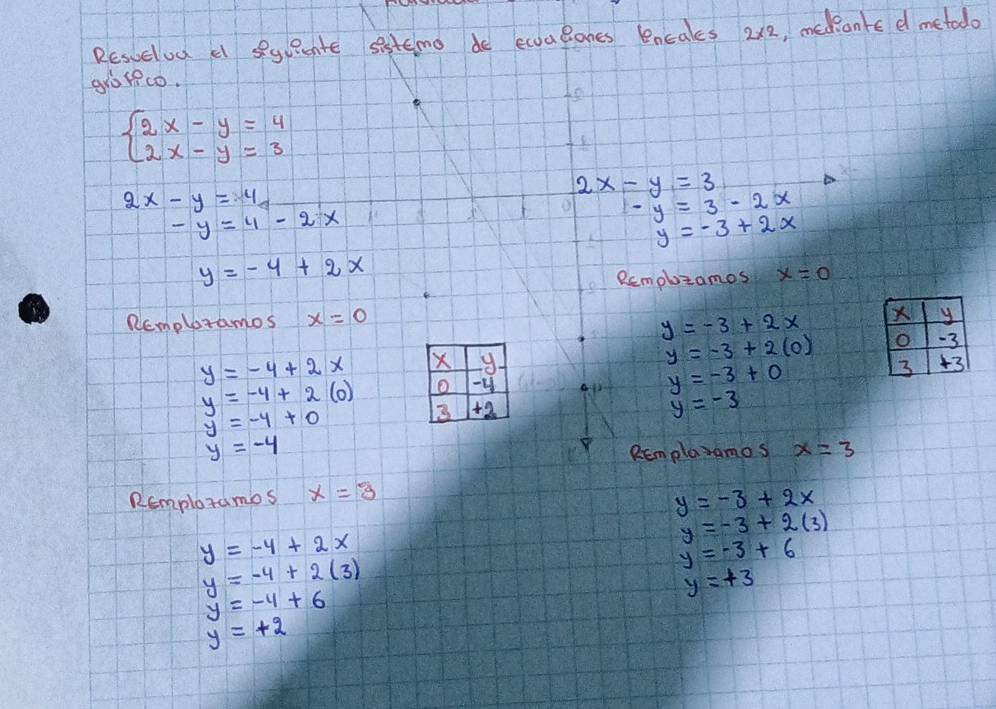 Resuelva el siguiente sistemo de ecuaciones lineales 2x2, mediante el metodo
gráfico.
2x - y = 4
2x - y = 3
2x - y = 4
- y = 4 - 2x
y = -4 + 2x
Remplozamos x = 0
y = -4 + 2x
y = -4 + 2 (0)
y = -4 + 0
y = -4
x y
0 -4
3 +2
Remplozamos x = 3
y = -4 + 2x
y = -4 + 2 (3)
y = -4 + 6
y = +2
2x - y = 3
- y = 3 - 2x
y = -3 + 2x
Remplozamos x = 0
y = -3 + 2x
y = -3 + 2 (0)
y = -3 + 0
y = -3
x y
0 -3
3 +3
Remplazamos x = 3
y = -3 + 2x
y = -3 + 2 (3)
y = -3 + 6
y = +3